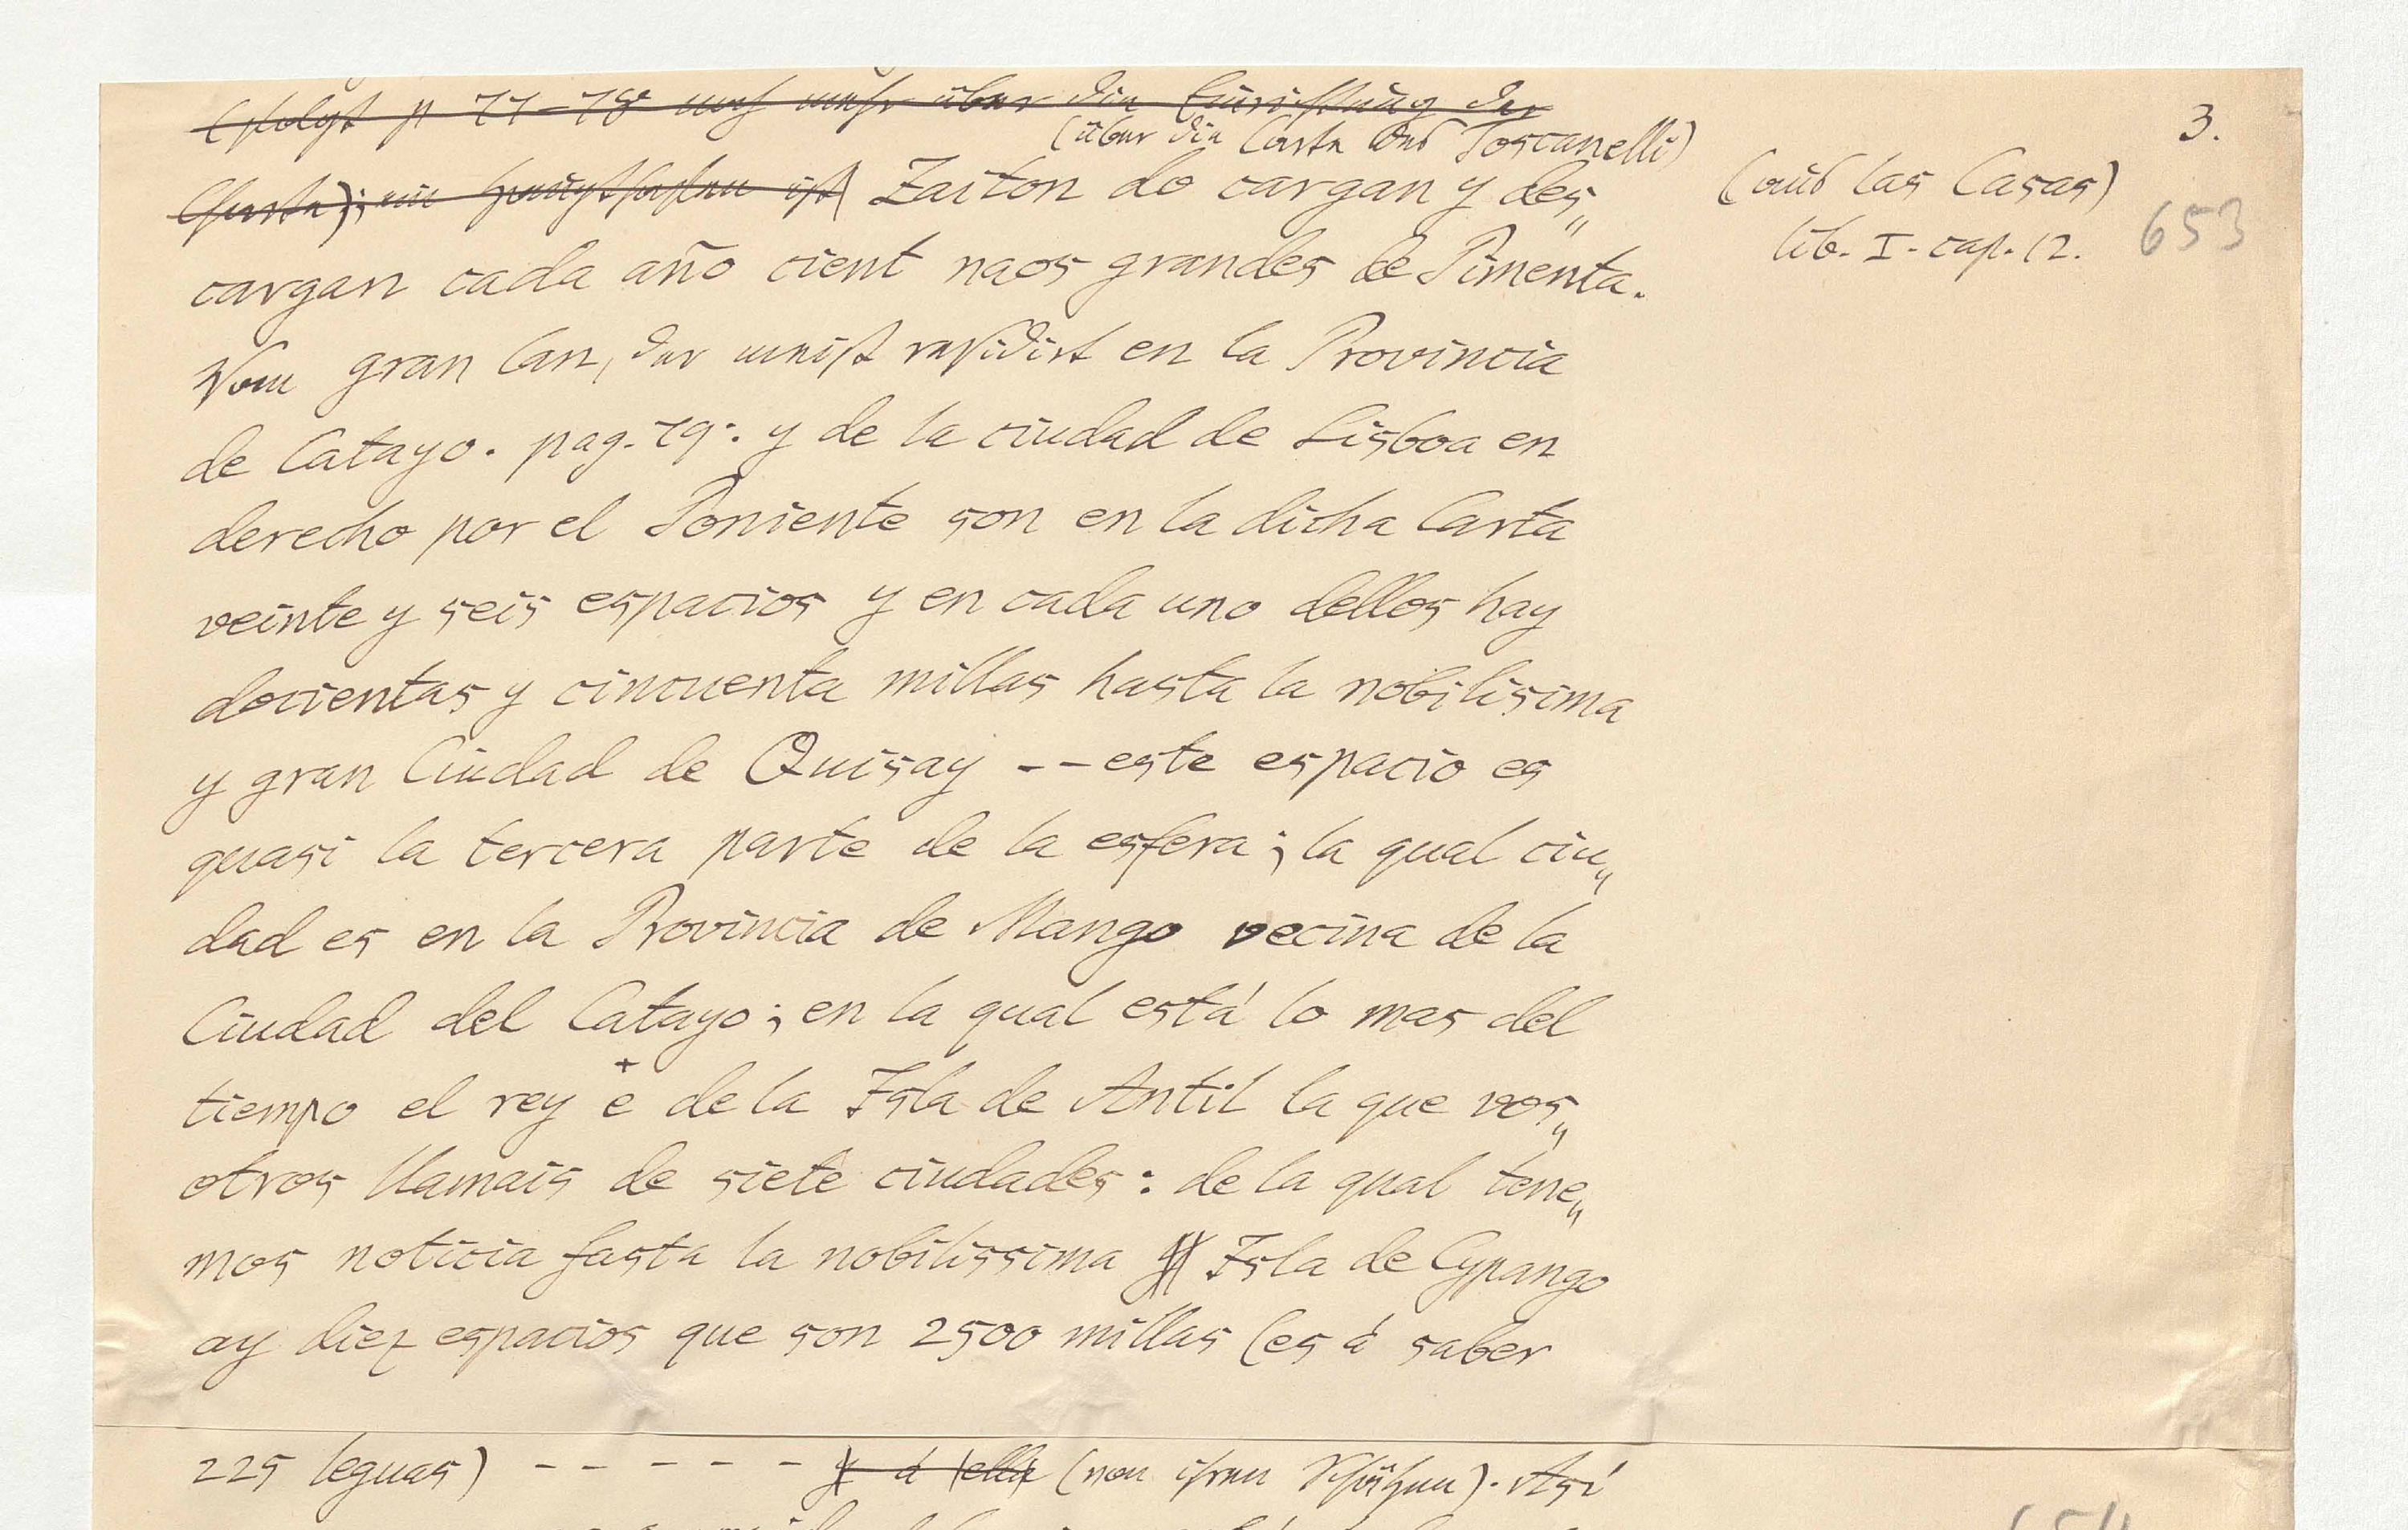 (folgt p 77–78 noch mehr über die Einrichtung der
(über die Carta des Toscanelli)
Charte); Zaiton do cargan y des„
cargan cada año cient naos grandes de Pimenta.
Vom gran Can, der meist residirt en la Provincia
de Catayo. pag. 79: y de la ciudad de Lisboa en
derecho por el Poniente son en la dicha Carta
veinte y seis espacios y en cada uno dellos hay
docientas y cincuenta millas hasta la nobilisima
y gran Ciudad de Quisay -- este espacio es
quasi la tercera parte de la esfera; la qual ciu„
dad es en la Provincia de Mango vecina de la
Ciudad del Catayo; en la qual está lo mas del
tiempo el rey + e de la Isla de Antil la que vos„
otros llamais de siete ciudades: de la qual tene„
mos noticia fasta la nobilissima Isla de Cypango
ay diez espacios que son 2500 millas (es á saber
225 leguas) - - - - - - y á ella (von ihren Schäzen). Así
3.
(aus las Casas)
lib. I. cap. 12.
653
654